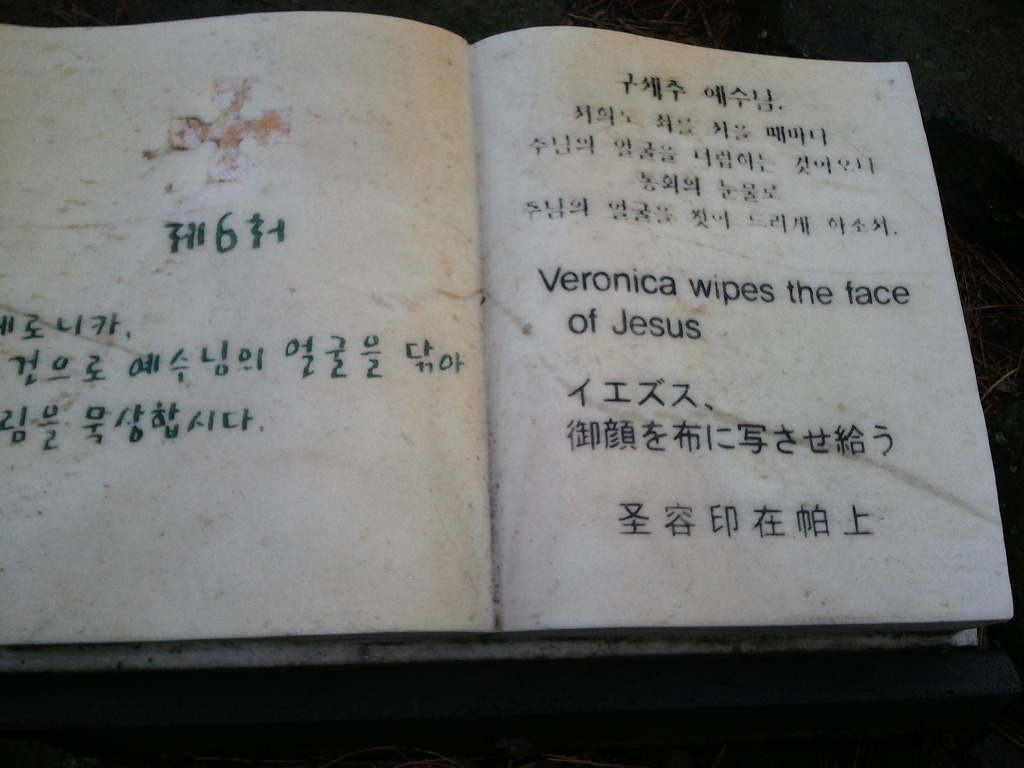 제6처
베로니카,
건으로 예수님의 얼굴을 닦아
림을 묵상합시다.
구세주 예수님.
저희도 죄를 지을 때마다
주님의 얼굴을 더럽히는 것이오니
통회의 눈물로
주님의 얼굴을 씻어 드리게 하소서.
Veronica wipes the face
of Jesus
イエズス、
御顔を布に写させ給う
圣容印在帕上